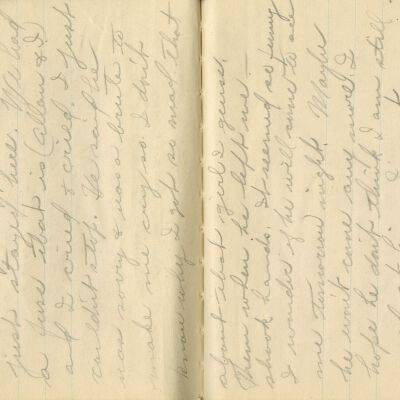 just stayed here. We had
a fuss that is (Allan & I)
and I cried & cried. I just
couldn't stop. He said he
was sorry & was a brute to
make me cry so. I don't
know why I got so mad. that
about that girl I guess.
Then when he left we
shook hands. It seemed so funny
I wonder if he will come to see
me tomorrow night. Maybe
he won't come any more. I
hope he don't think I am still